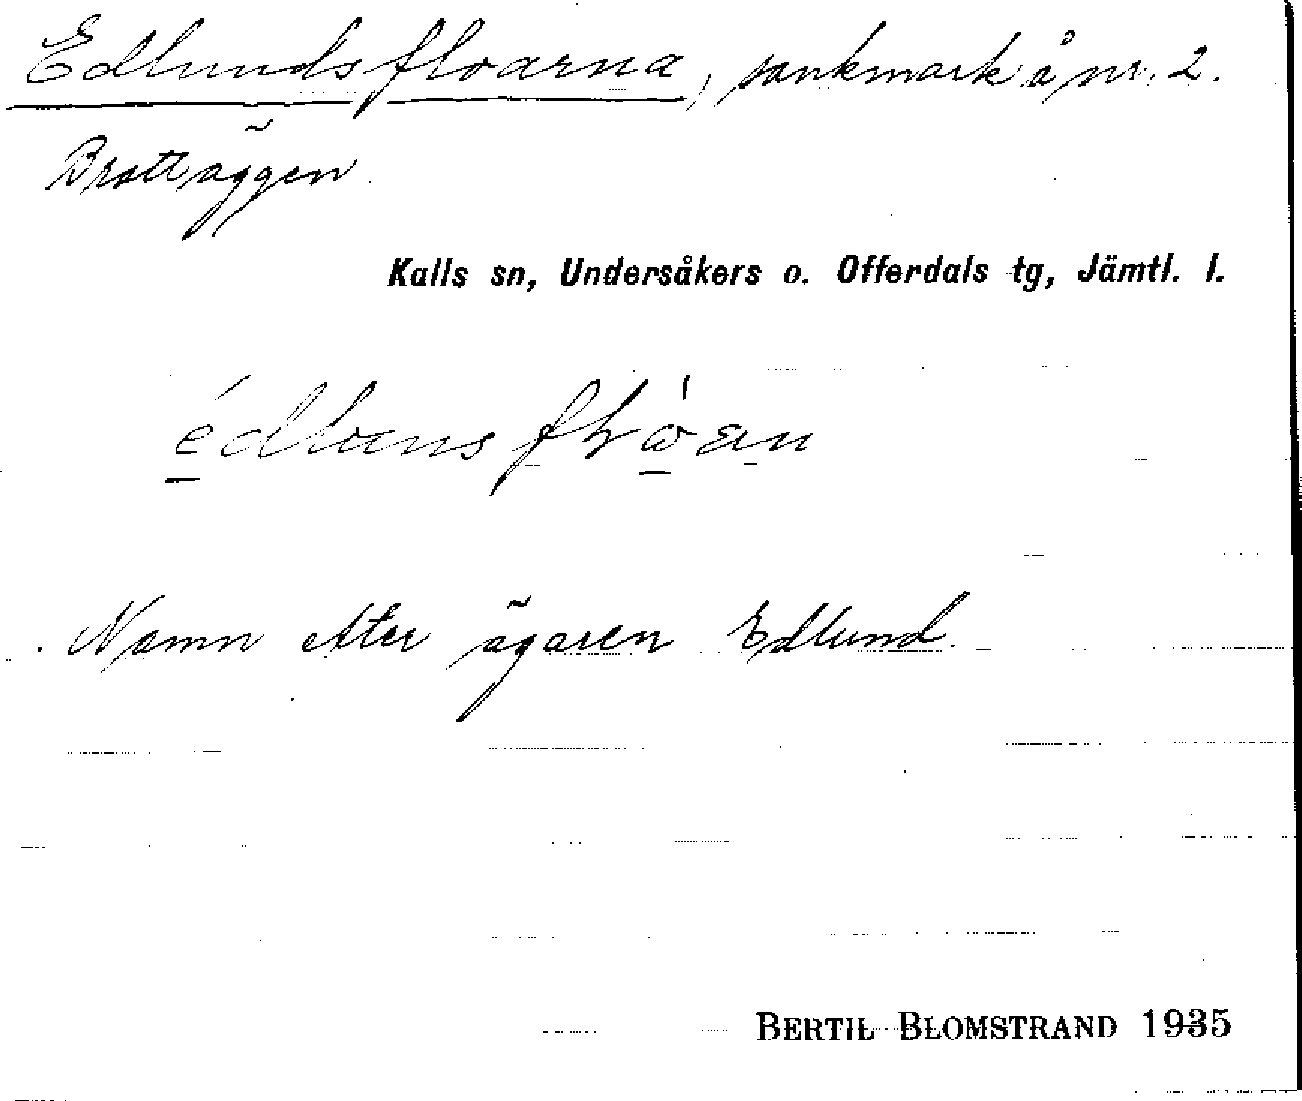 Edlundsfloarna, sankmark å nr. 2.
Brattäggen.
Kalls sn, Undersåkers o. Offerdals tg, Jämtl. l.
Namn efter ägaren Edlund.
BERTIL BLOMSTRAND 1935